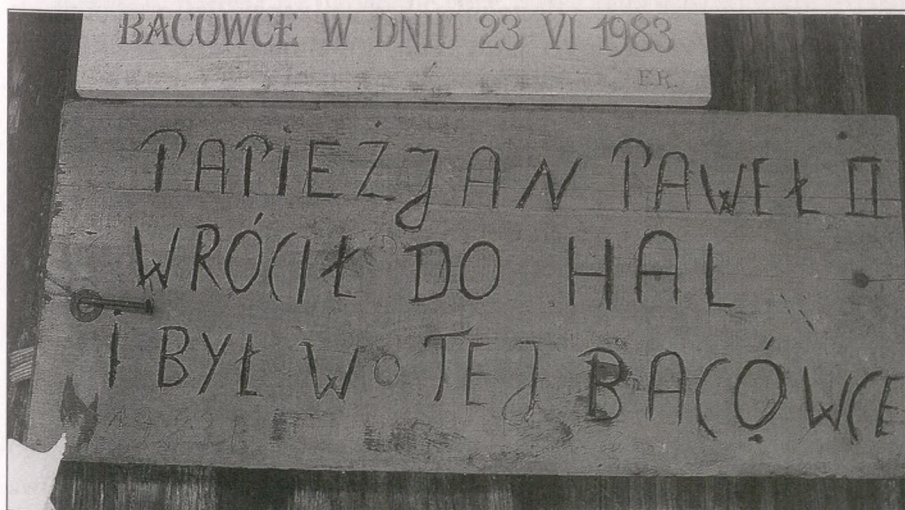 BACÓWCE W DNIU 23 VI 1983
E.R.
PAPIEŻ JAN PAWEŁ II
WRÓCIŁ DO HAL
I BYŁ W TEJ BACÓWCE